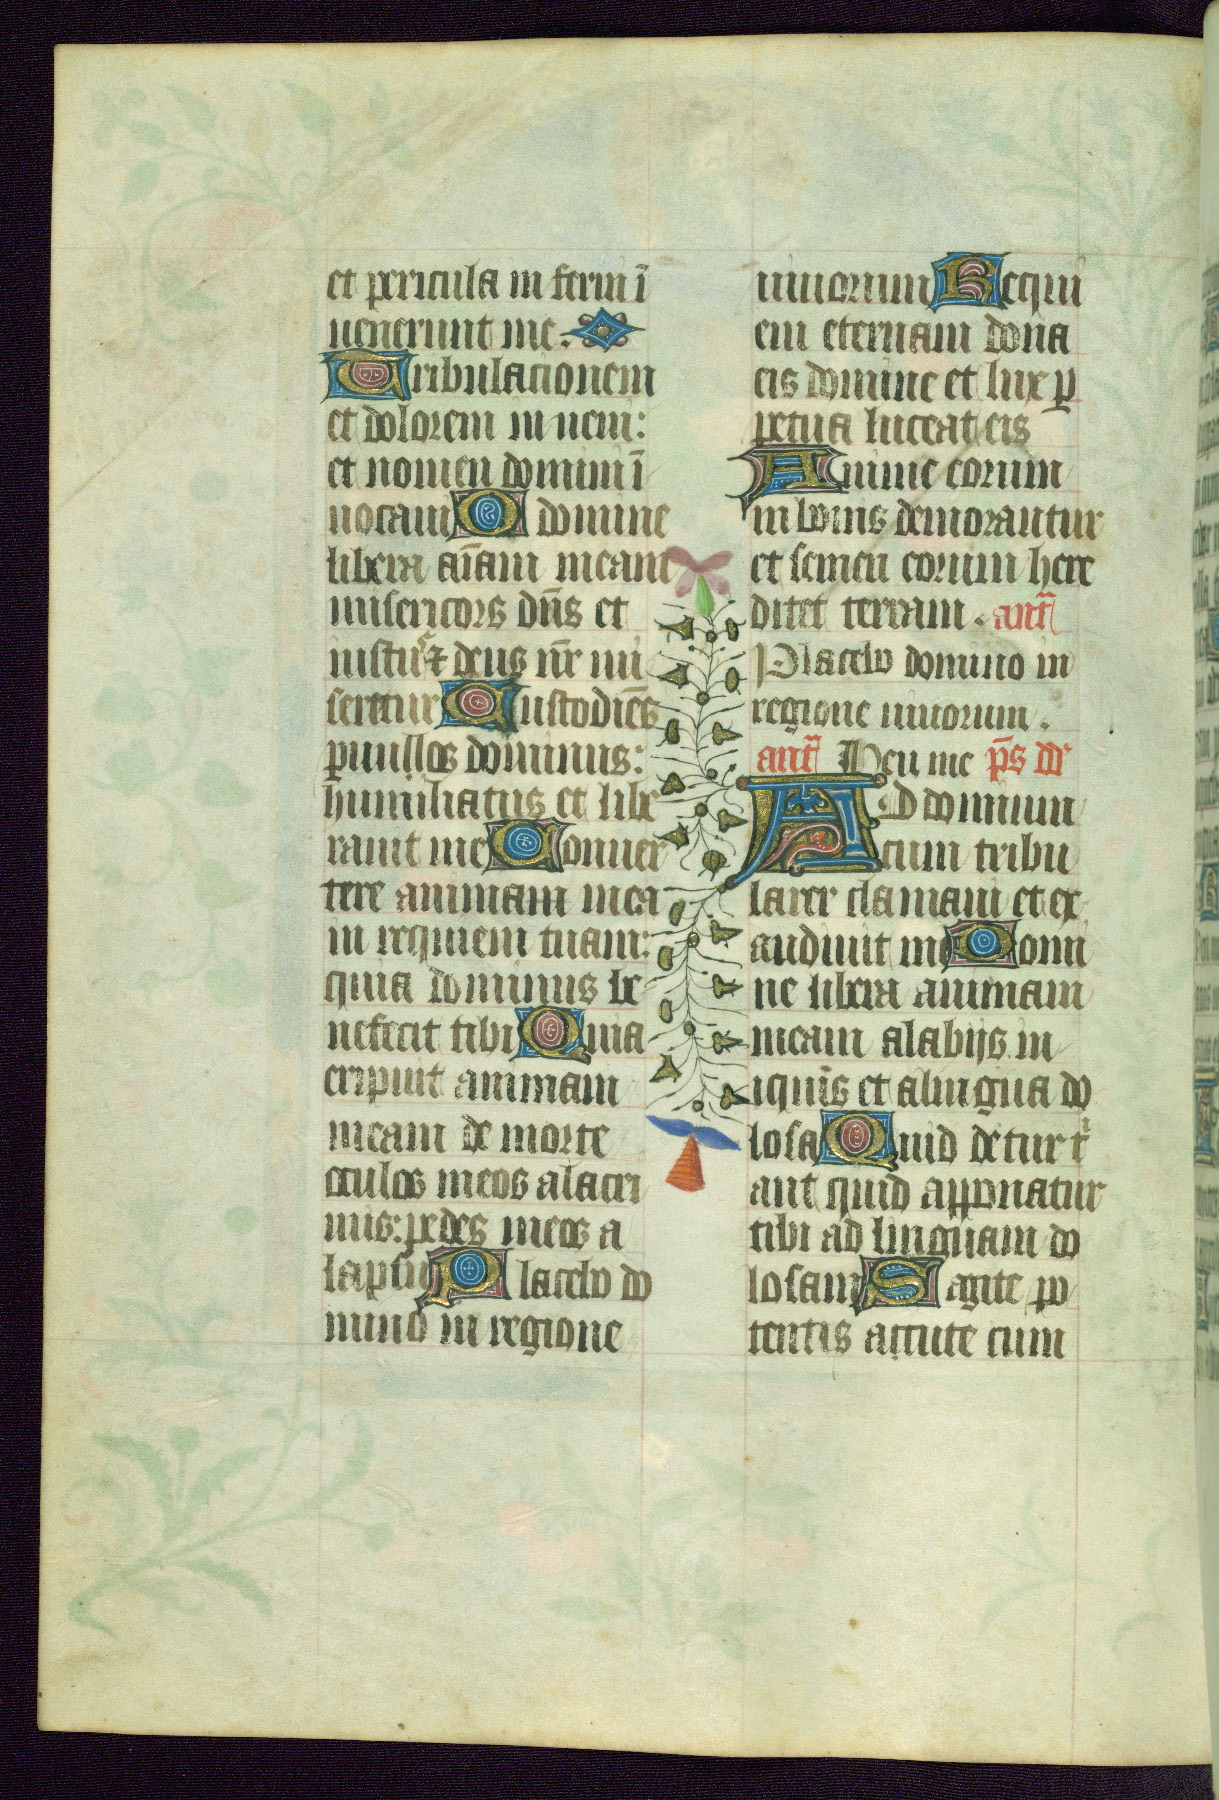 et pericula inferni ī
uenerunt me.
Tribulacionem
et dolorem inueni:
et nomen domini ī
uocaui O domine
libera aīam meam
misericors dn̄s et
iustus ⁊ deus nr̄ mi
seretur Custodiēs
paruulos dominus:
humiliatus et libe
rauit me Conuer
tere animam mea
in requiem tuam:
quia dominus be
nefecit tibi Quia
eripuit animam
meam de morte
oculos meos alacri
mis: pedes meos a
lapsu Placebo do
mino in regione
uiuorum Requi
em eternam dona
eis domine et lux p
petua luceat eis
Anime eorum
in bonis demorantur
et semen eorum here
ditet terram. ant̄
Placebo domino in
regione uiuorum.
ant̄ Heu me p̄s dd
AD dominum
cum tribu
larer clamaui et ex
audiuit me Domi
ne libera animam
meam alabijs in
iquis et alingua do
losa Quid detur t
aut quid apponatur
tibi ad linguam do
losam Sagite po
tentis accute cum